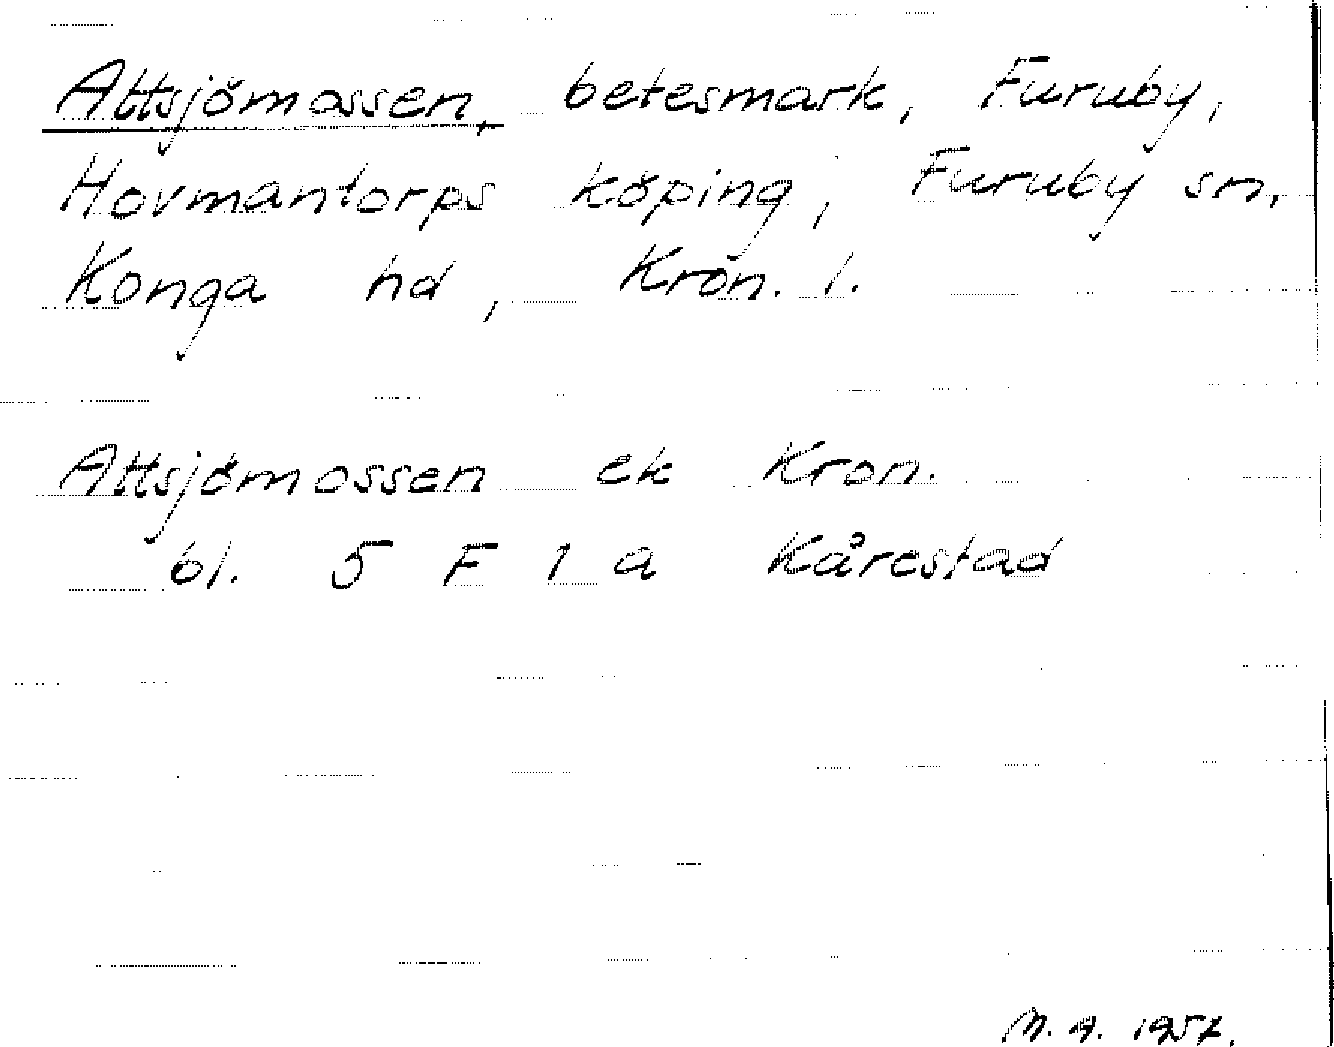 Attsjömossen, betesmark, Furuby,
Hovmantorps köping, Furuby sn,
Konga hd, Kron. l.
Attsjömossen ek Kron.
bl. 5 F 1 a Kårestad
M. A. 1957.